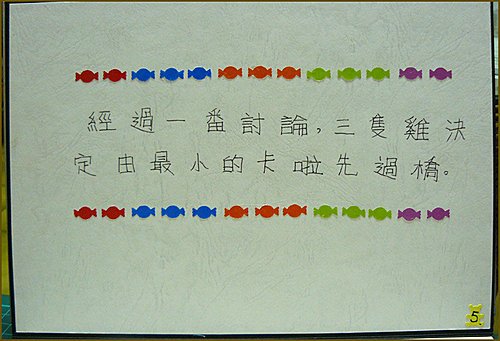 經過一番討論,三隻雞決
定由最小的卡啦先過橋.
5